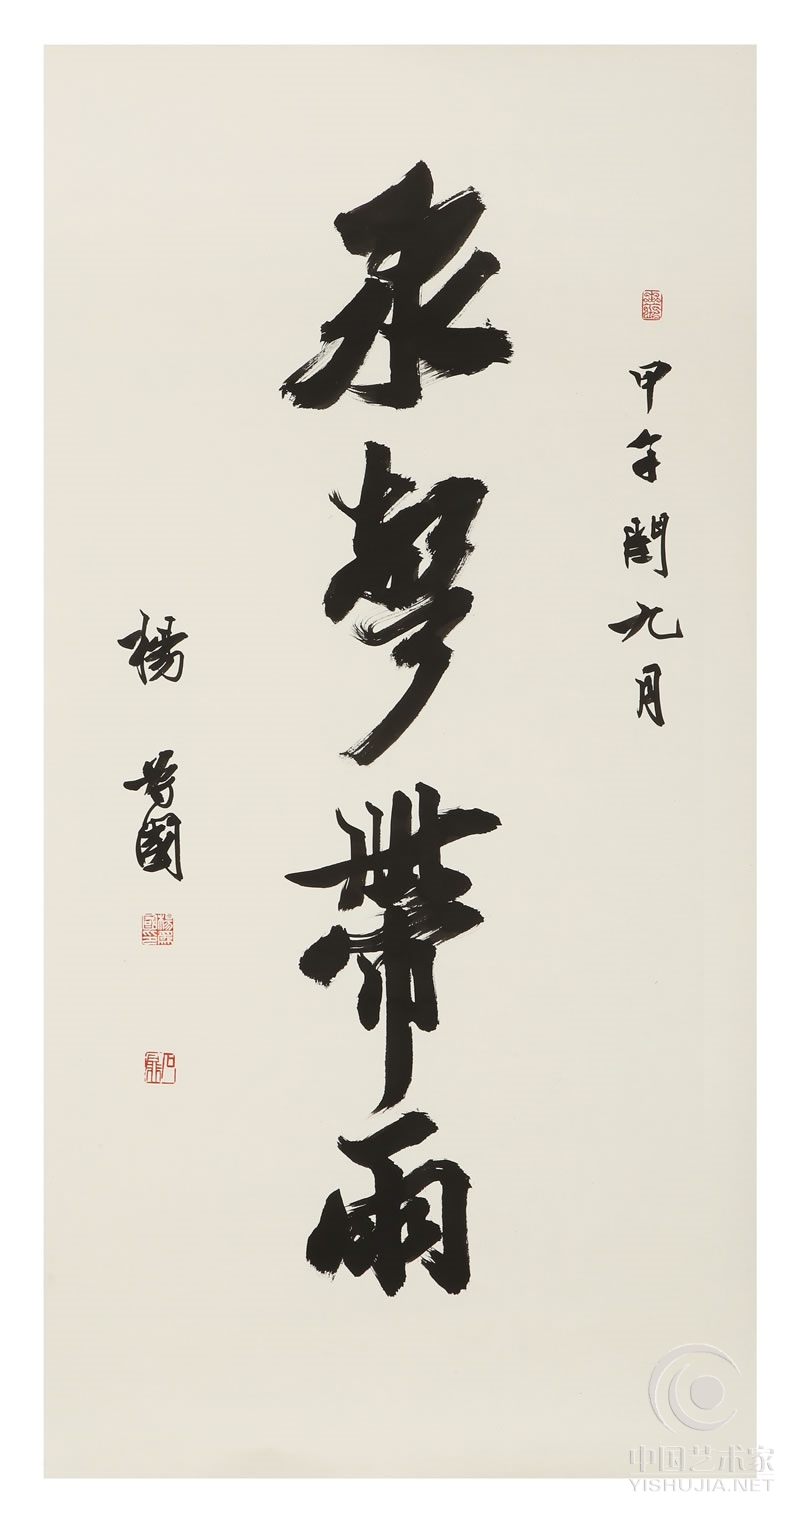 甲午閏九月
泉聲帶雨
楊 國
中国艺术家
YISHUJIA.NET